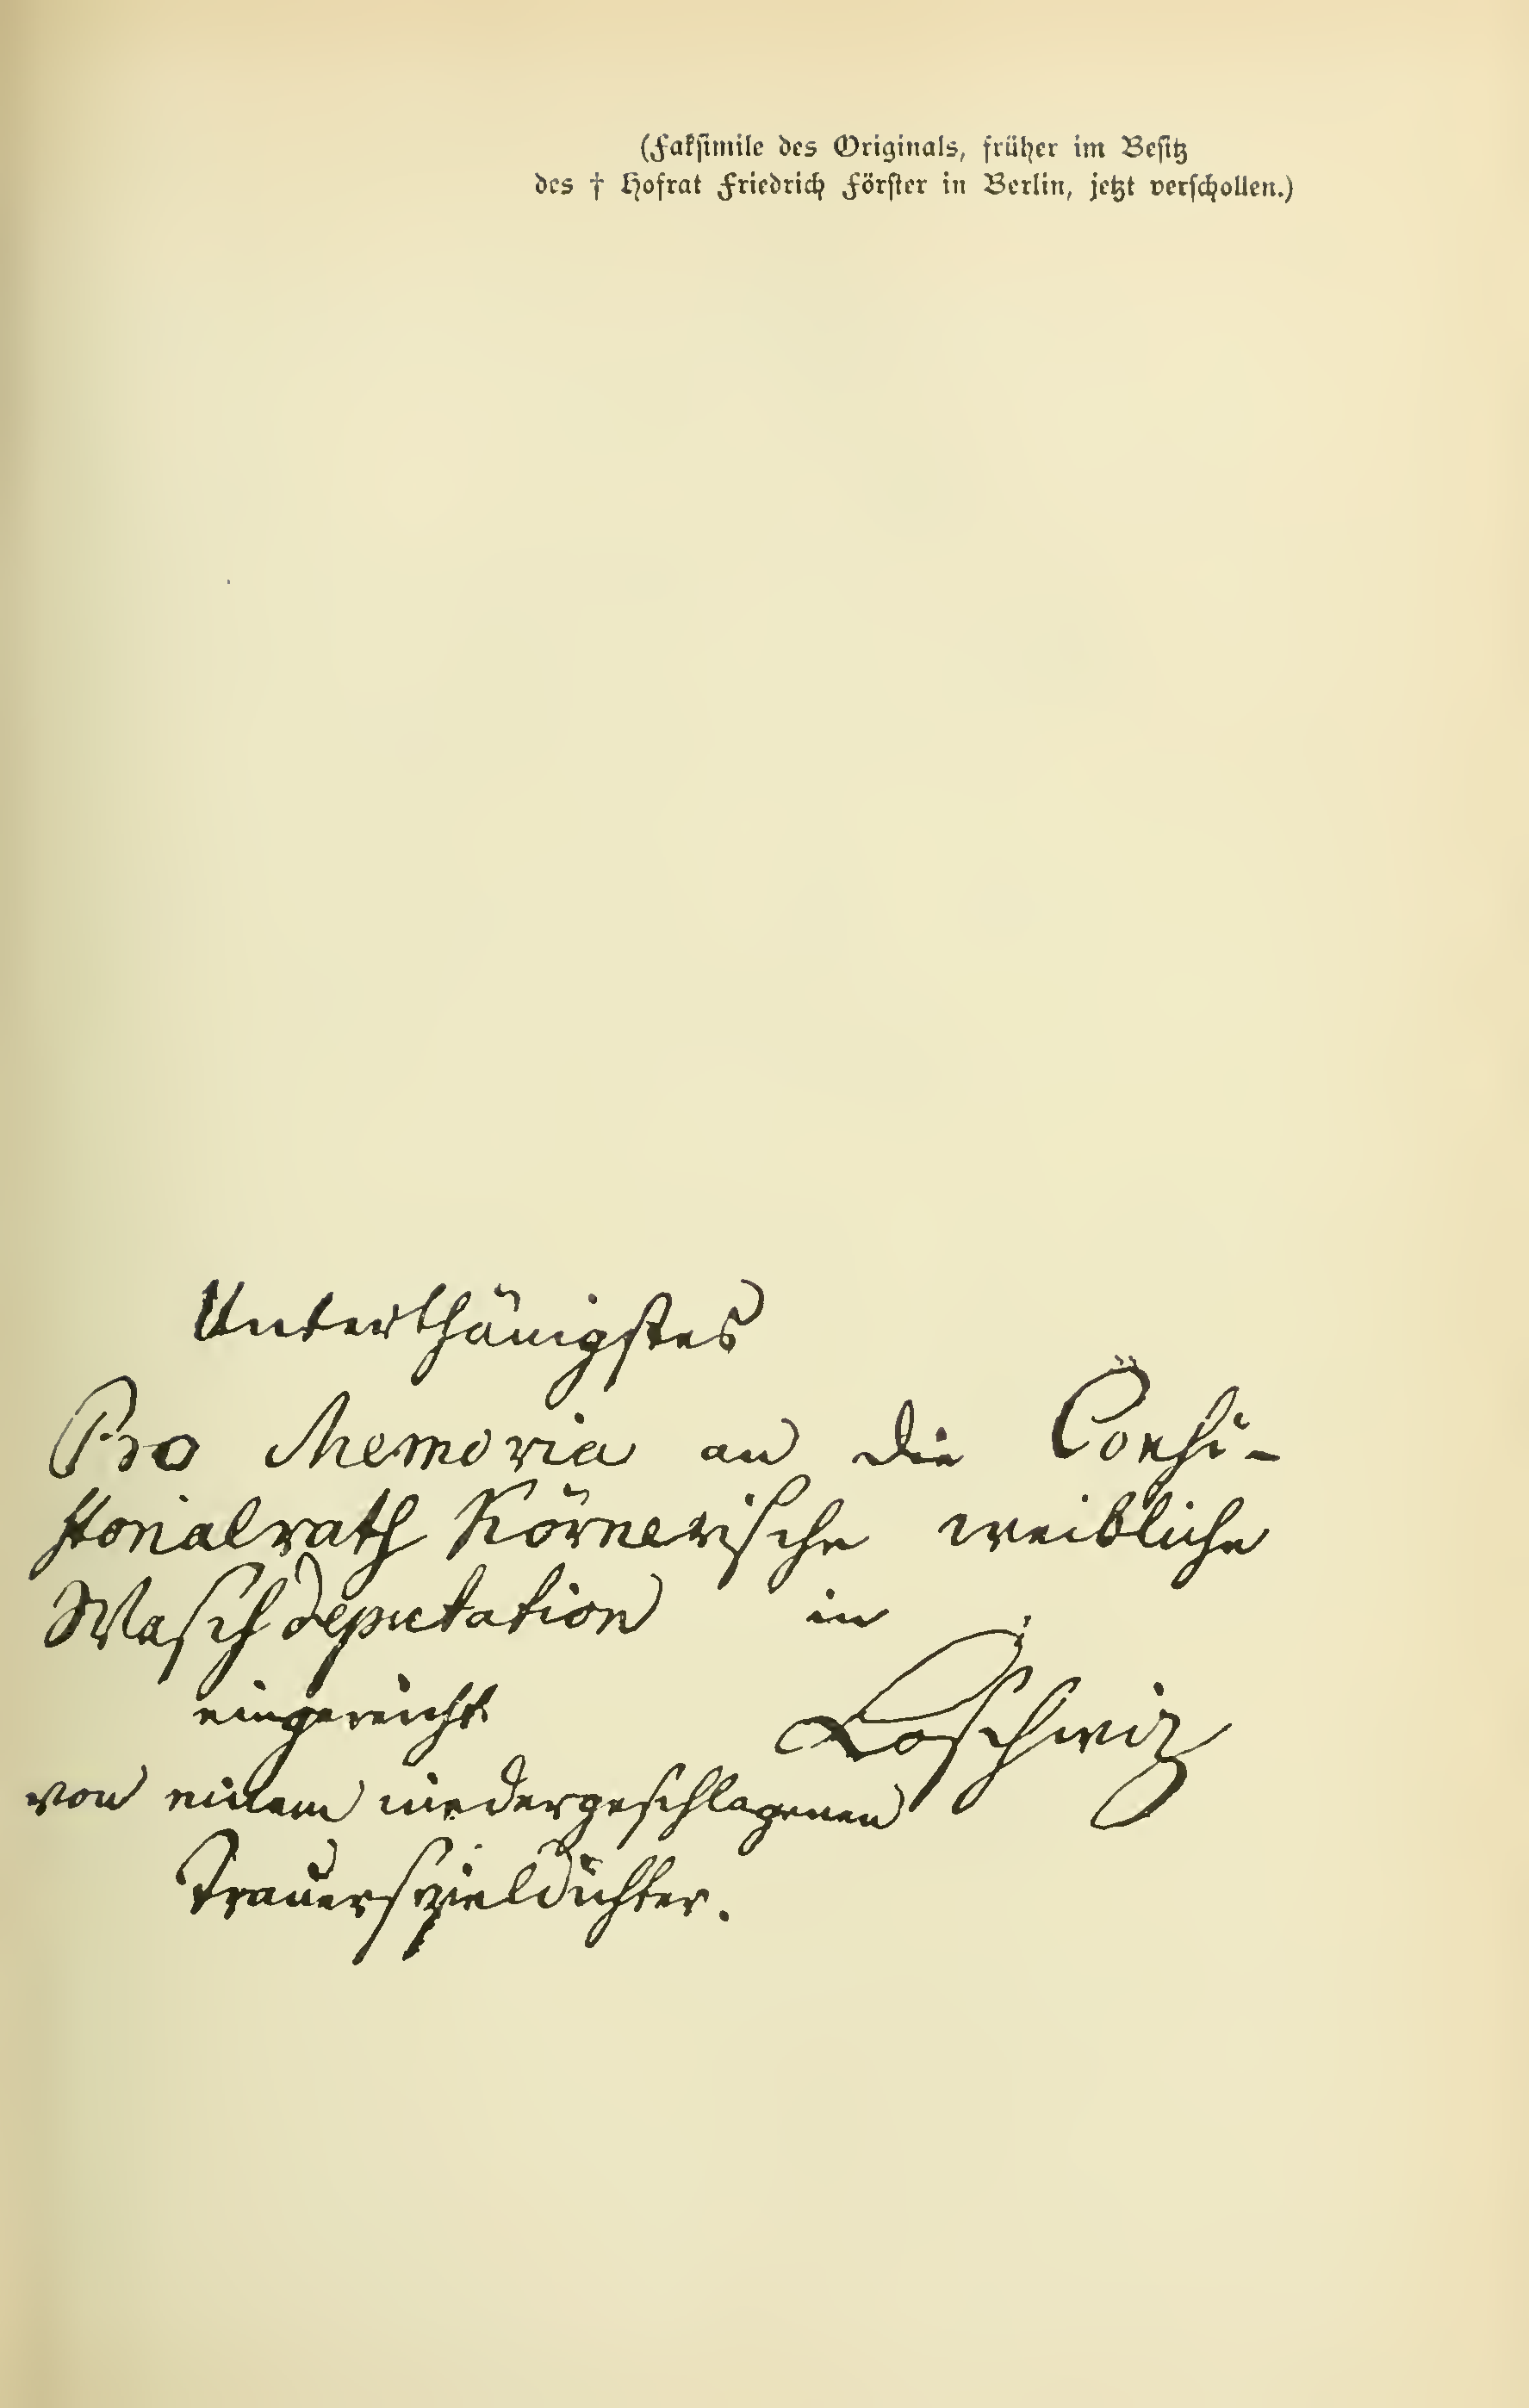 (Faksimile des Originals, früher im Besitz
des † Hofrat Friedrich Förster in Berlin, jetzt verschollen.)
Unterthänigstes
Pro Memoria an die Consi-
storialrath Körnerische weibliche
Waschdeputation in
eingereicht Loschwiz
von einem niedergeschlagenen
Trauerspieldichter.